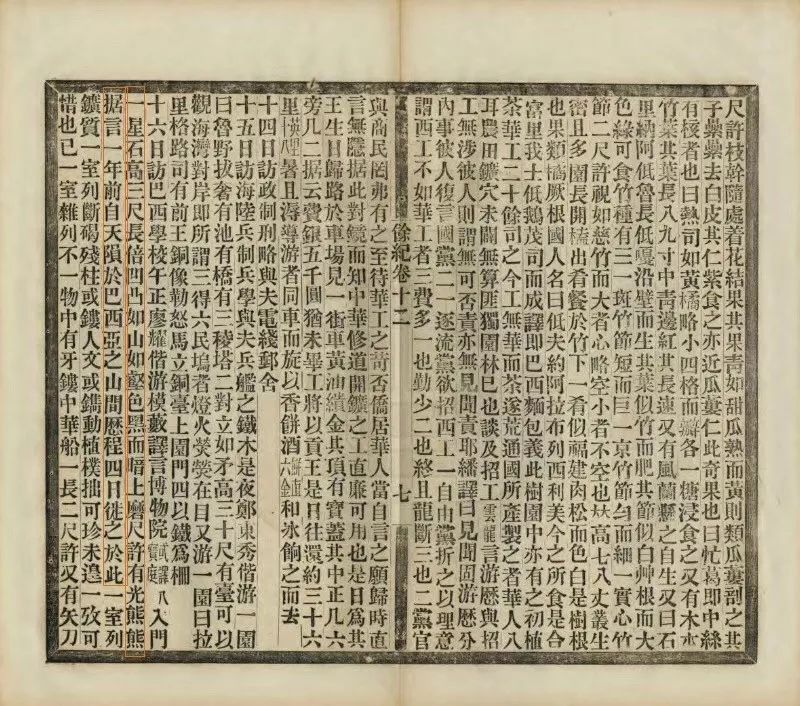 尺許枝幹隨處着花結果其果青如甜瓜熟而黃則類瓜蔞剖之其
子纍纍去白皮其仁紫食之亦近瓜蔞仁此奇果也曰忙葛即中絲
有核者也曰熱司如黃橘略小四格而瓣各一糖浸食之又有木
竹葉其葉長八九寸中青邊紅其長速又有風蘭懸之自生又曰石
里納阿低魯長低嘎沿壁而生其葉似竹而肥其節似白艸根而大
色綠可食竹種有三一斑竹節短而巨一京竹節勻而細一實心竹
節二尺許視如慈竹而大者心略空小者不空也𠀤高七八丈叢生
密且多園長開出肴餐於竹下一肴似福建肉松而色白是樹根
也果類橘厥根國人名曰低夫約阿拉布列西利美今之所食是合
富里我士低鵝茂司而成譯即巴西麵包義此樹園中亦有之初植
茶華工二十餘司之今工無華而茶遂荒通國所產製之者華人八
耳農田鑛穴未闢無算匪獨園林已也談及招工雲龍言游歷與招
工無涉彼人則謂無可否責亦無見聞責耶繙譯曰見聞固游歷分
內事彼人復言國黨二一逐流黨欲招西工一自由黨折之以理意
謂西工不如華工者三費多一也勤少二也終且龍斷三也二黨官
餘紀卷十二 七
與商民罔弗有之至待華工之苛否僑居華人當自言之願歸時直
言無隱据此對鏡而知中華修道開鑛之工直廉可用也是日爲其
王生日歸路於車場見一街車黃油繢金其頂有寶蓋其中正几六
旁几二据云費銀五千圓猶未畢工將以貢王是日往還約三十六
里英八里暑且溽導游者同車而旋以香餅酒和冰餉之而去
十四日訪政制刑略與夫電綫郵舍
十五日訪海陸兵制兵學與夫兵艦之鐵木是夜鄭東秀偕游一園
曰魯野拔奢有池有橋有三稜塔二對立如矛高三十尺有臺可以
觀海灣對岸即所謂三得六民塢者燈火熒熒在目又游一園曰拉
里格路司有前王銅像勒怒馬立銅臺上園門四以鐵爲柵
十六日訪巴西學校午正廖耀偕游模藪譯言博物院入門
一星石高三尺長倍凹凸如山如壑色黑而暗上磨尺許有光熊熊
据言一年前自天隕於巴西亞之山間歷程四日徙之於此一室列
鑛質一室列斷碣殘柱或鏤人文或鐫動植樸拙可珍未遑一攷可
惜也已一室雜列不一物中有牙鏤中華船一長二尺許又有矢刀